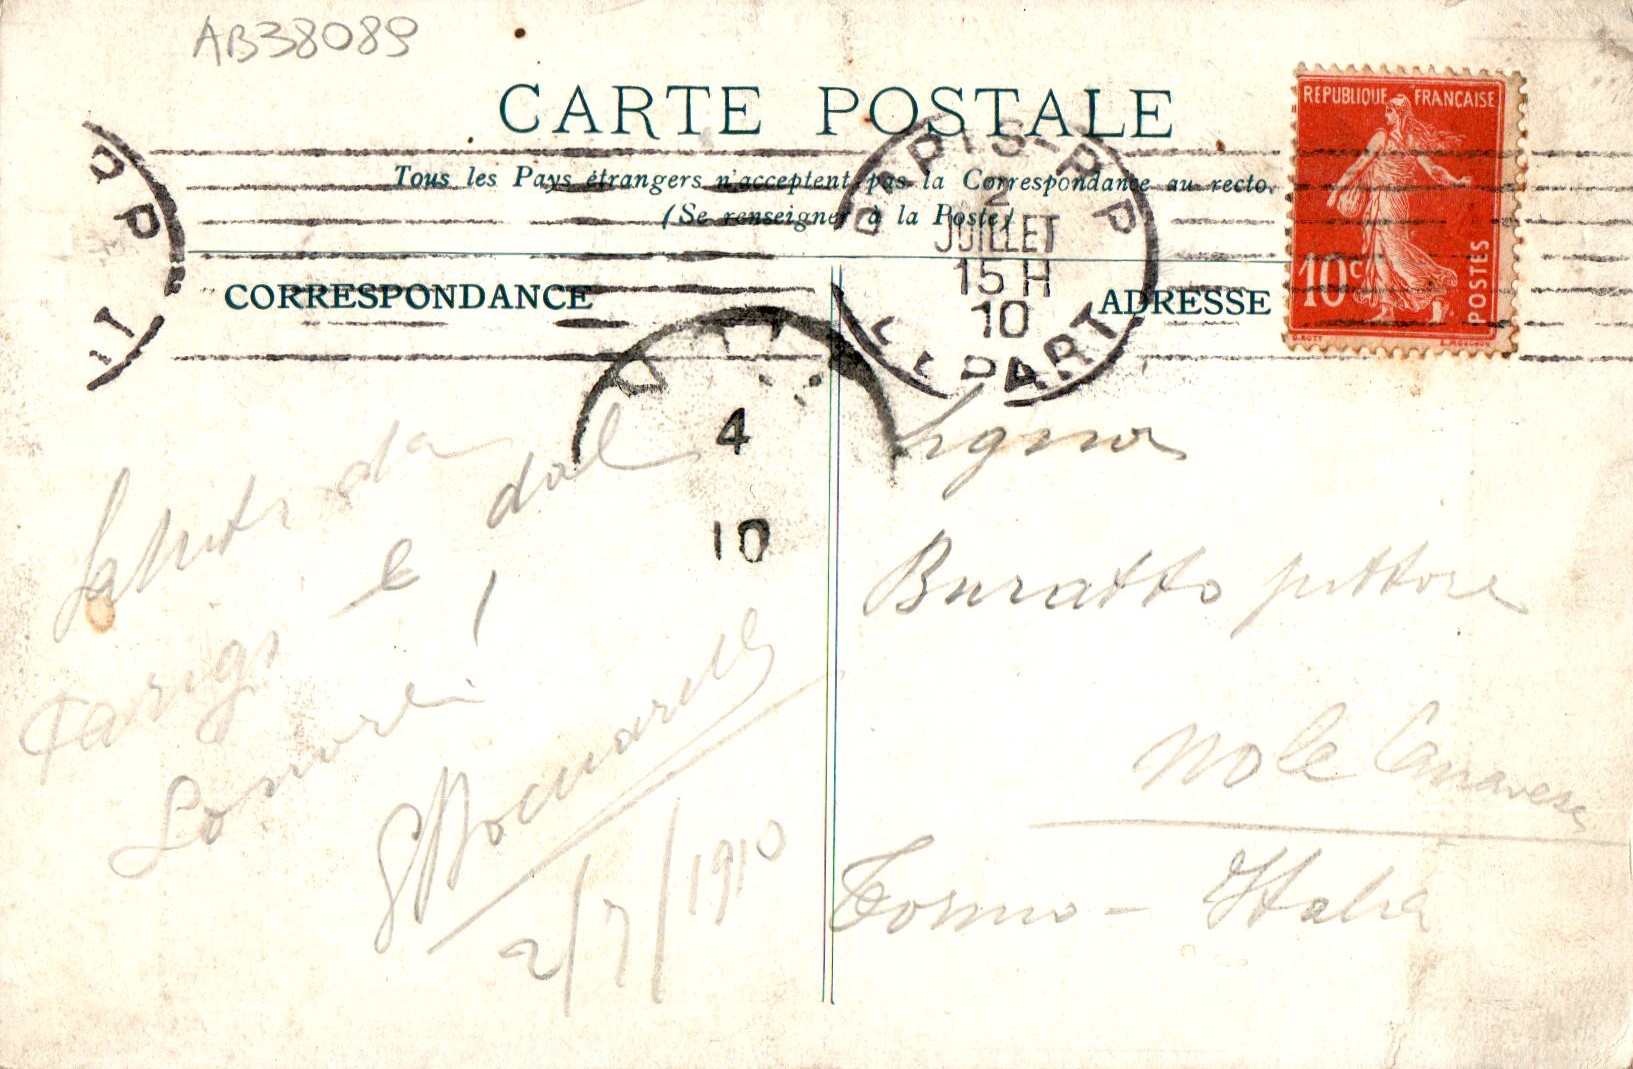 AB38089
CARTE POSTALE
Tous les Pays étrangers n'acceptent pas la Correspondance au recto.
(Se renseigner à la Poste)
CORRESPONDANCE
ADRESSE
REPUBLIQUE FRANÇAISE
10c
POSTES
PARIS-R.P
2
JUILLET
15 H
10
DEPART
R P
4
10
Saluti da
Parigi e dal
2/7/1910
Signor
Buratto pittore
Nole Canavese
Torino - Italia